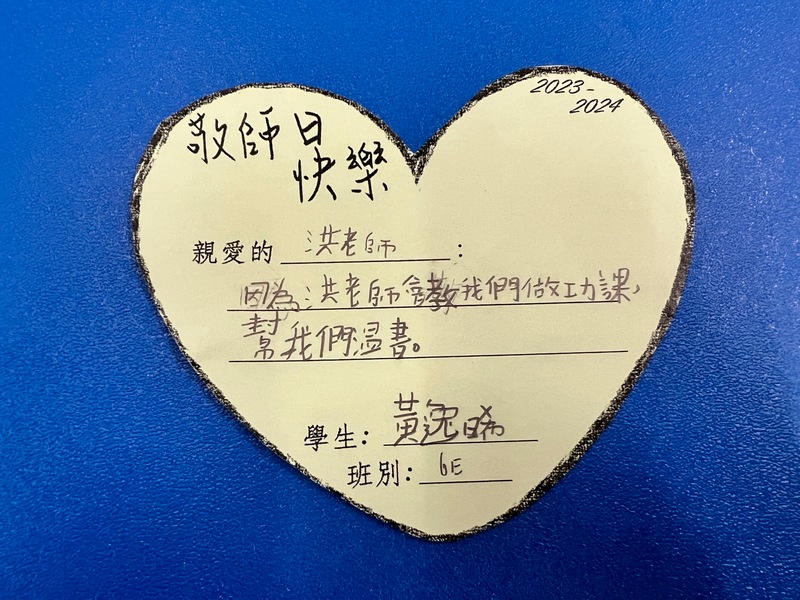 2023-
2024
敬師日
快樂
親愛的 洪老師 :
因為洪老師會教我們做功課,
幫我們溫書。
學生: 黃逸晞
班別: 6E